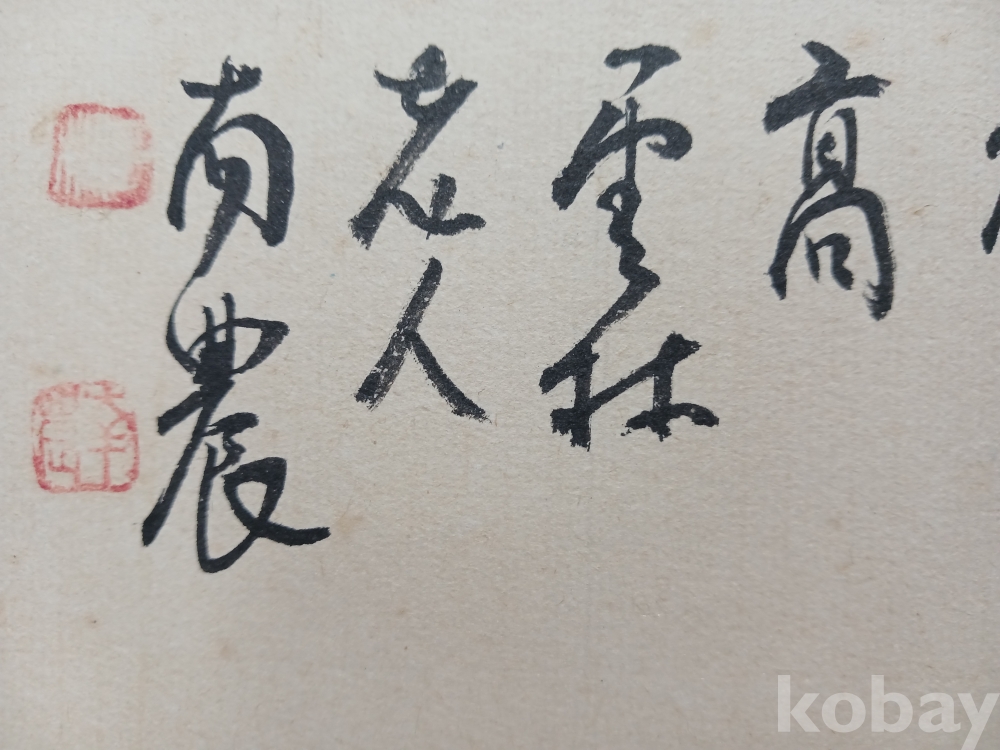 高
雲林
老人
南農
kobay